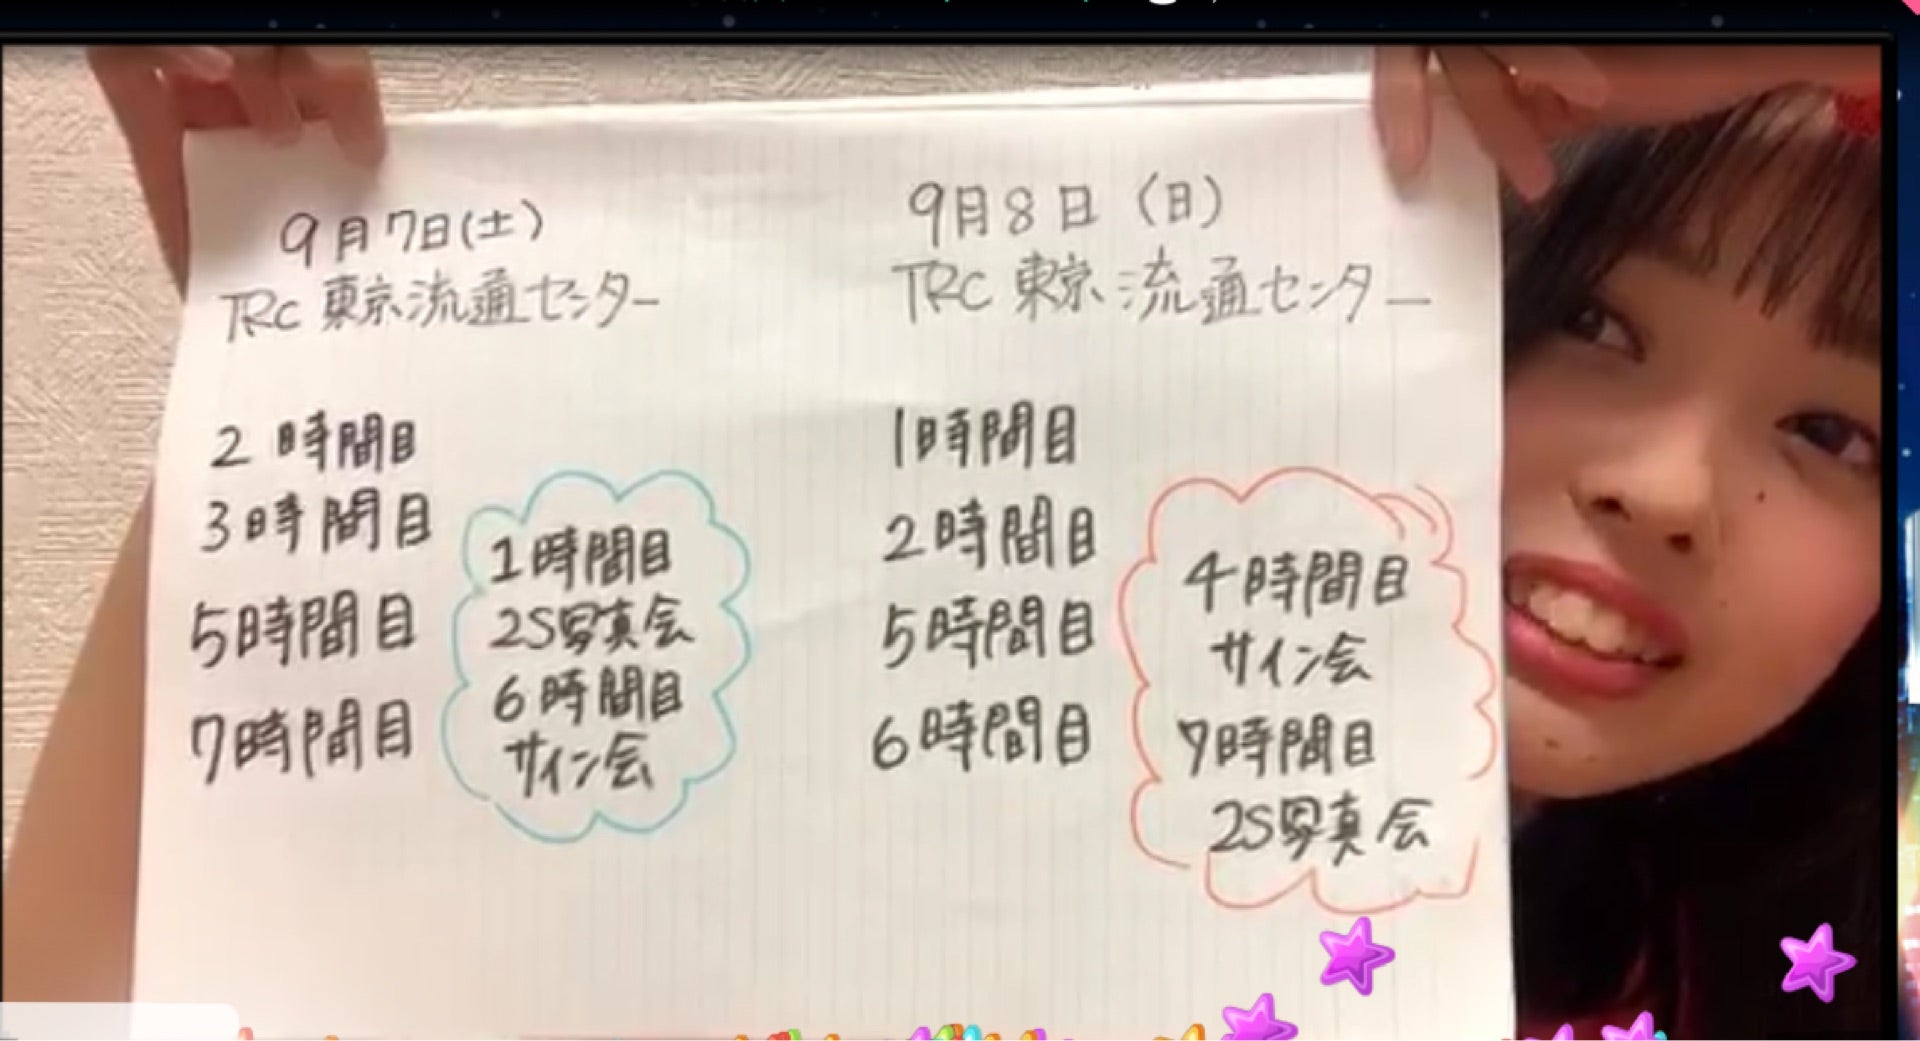 9月7日(土)
TRC 東京流通センター
2時間目
3時間目
5時間目
7時間目
1時間目
2S写真会
6時間目
サイン会
9月8日(日)
TRC 東京流通センター
1時間目
2時間目
5時間目
6時間目
4時間目
サイン会
7時間目
2S写真会